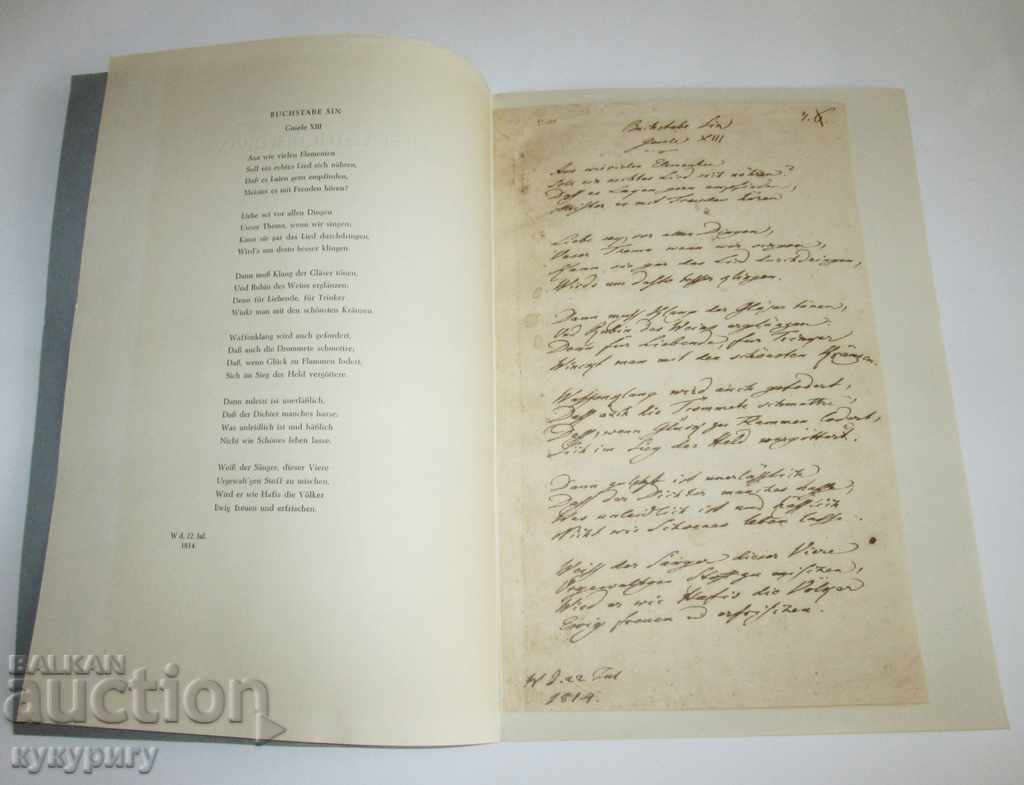 BUCHSTABE SIN
Gasele XIII
Aus wie vielen Elementen
Soll ein echtes Lied sich nähren,
Daß es Laien gern empfinden,
Meister es mit Freuden hören?
Liebe sei vor allen Dingen
Unser Thema, wenn wir singen;
Kann sie gar das Lied durchdringen,
Wird's um desto besser klingen.
Dann muß Klang der Gläser tönen,
Und Rubin des Weins erglänzen;
Denn für Liebende, für Trinker
Winkt man mit den schönsten Kränzen.
Waffenklang wird auch gefordert,
Daß auch die Drommete schmettre;
Daß, wenn Glück zu Flammen lodert,
Sich im Sieg der Held vergöttere.
Dann zuletzt ist unerläßlich,
Daß der Dichter manches hasse;
Was unleidlich ist und häßlich
Nicht wie Schönes leben lasse.
Weiß der Sänger, dieser Viere
Urgewalt'gen Stoff zu mischen,
Wird er wie Hafis die Völker
Ewig freuen und erfrischen.
W d. 22. Jul.
1814
Buchstabe Sin
Gasele XIII
Aus wie vielen Elementen
Soll ein echtes Lied sich nähren?
Dass es Layen gern empfinden,
Meister es mit Freuden hören
Liebe sey vor allen Dingen,
Unser Thema wenn wir singen,
Kann sie gar das Lied durchdringen,
Wirds um desto besser klingen.
Dann muss Klang der Gläser tönen,
Und Rubin des Weins erglänzen.
Denn für Liebende, für Trincker
Winckt man mit den schönsten Kränzen.
Waffenklang wird auch gefodert,
Dass auch die Trommete schmettre,
Dass, wenn Glück zu Flammen lodert,
Sich im Sieg der Held vergöttert.
Dann zuletzt ist unerlässlich
Dass der Dichter manches hasse,
Was unleidlich ist und hässlich
Nicht wie Schoenes leben lasse.
Weiss der Sänger dieser Viere
Urgewaltgen Stoff zu mischen,
Wird er wie Hafis die Völcker
Ewig freuen und erfrischen.
W d. 22 Jul
1814.
BALKAN
auction
кукуригу